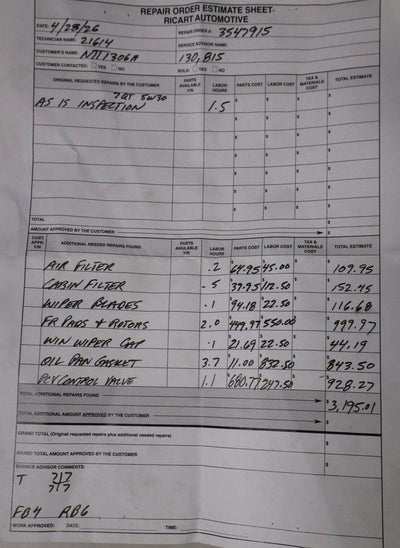 REPAIR ORDER ESTIMATE SHEET
RICART AUTOMOTIVE
DATE: 4/28/26 REPAIR ORDER #: 3547915
TECHNICIAN NAME: 21614 SERVICE ADVISOR NAME:
CUSTOMER'S NAME: NTT1306A 130,815
CUSTOMER CONTACTED: YES NO SOLD: YES NO
ORIGINAL REQUESTED REPAIRS BY THE CUSTOMER PARTS AVAILABLE Y/N LABOR HOURS PARTS COST LABOR COST TAX & MATERIALS COST TOTAL ESTIMATE
7QT 5W30
AS IS INSPECTION 1.5
TOTAL
AMOUNT APPROVED BY THE CUSTOMER
CUST. APPR. Y/N ADDITIONAL NEEDED REPAIRS FOUND PARTS AVAILABLE Y/N LABOR HOURS PARTS COST LABOR COST TAX & MATERIALS COST TOTAL ESTIMATE
AIR FILTER .2 $64.95 $45.00 $109.95
CABIN FILTER .5 $39.95 $112.50 $152.45
WIPER BLADES .1 $94.18 $22.50 $116.68
FR PADS + ROTORS 2.0 $449.97 $550.00 $999.97
WIN WIPER CAP .1 $21.69 $22.50 $44.19
OIL PAN GASKET 3.7 $11.00 $832.50 $843.50
PCV CONTROL VALVE 1.1 $680.77 $247.50 $928.27
TOTAL ADDITIONAL REPAIRS FOUND $3,195.01
TOTAL ADDITIONAL AMOUNT APPROVED BY THE CUSTOMER $
GRAND TOTAL (Original requested repairs plus additional needed repairs) $
GRAND TOTAL AMOUNT APPROVED BY THE CUSTOMER $
SERVICE ADVISOR COMMENTS:
T 7/7
7/7
FB4 RB6
WORK APPROVED: DATE: TIME: